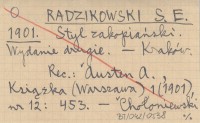 RADZIKOWSKI S. E.
1901. Styl zakopiański.
Wydanie drugie. — Kraków.
Rec.: Austen A.:
Książka (Warszawa) 1 (1901),
nr 12: 453. — Chołoniewski